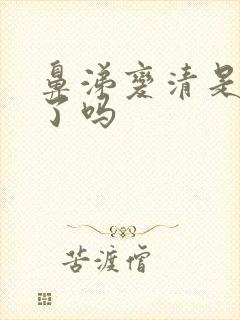 鼻涕变清是
了吗
苦渡僧